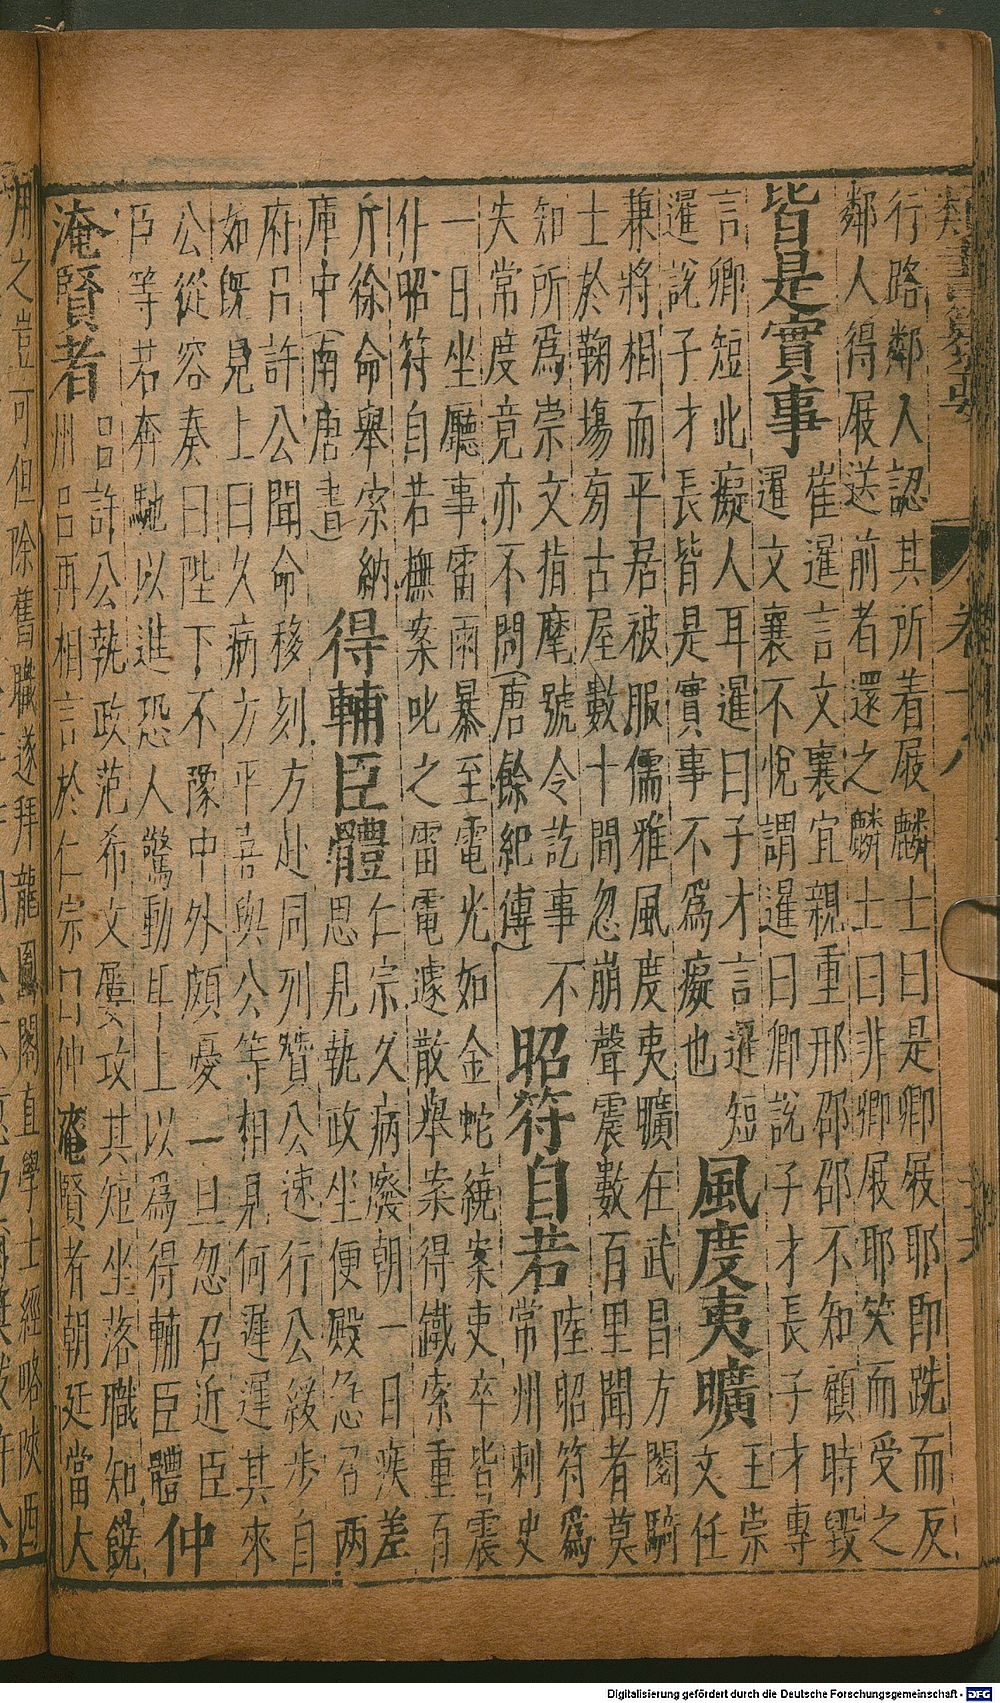 類書纂要
行路鄰人認其所着屐麟士曰是卿屐耶即跣而反
鄰人得屐送前者還之麟士曰非卿屐耶笑而受之
皆是實事
崔暹言文襄宜親重邢邵邵不知顧時毀
暹文襄不悅謂暹曰卿說子才長子才專
言卿短此癡人耳暹曰子才言暹短
暹說子才長皆是實事不爲癡也
風度夷曠
王崇
文任
兼將相而平居被服儒雅風度夷曠在武昌方閱騎
士於鞠場芴古屋數十間忽崩聲震數百里聞者莫
知所爲崇文指麾號令訖事不
失常度竟亦不問(唐餘紀傳)
昭符自若
陸昭符爲
常州刺史
一日坐廳事雷雨暴至電光如金蛇繞案吏卒皆震
仆昭符自若撫案叱之雷電遽散舉案得鐵索重百
斤徐命舉索納
庫中(南唐書)
得輔臣體
仁宗久病廢朝一日疾差
思見執政坐便殿急召兩
府呂許公聞命移刻方赴同列贊公速行公緩步自
如既見上曰久病方平喜與公等相見何遲遲其來
公從容奏曰陛下不豫中外頗憂一旦忽召近臣
臣等若奔馳以進恐人驚動耳上以爲得輔臣體
仲
淹賢者
呂許公執政范希文屢攻其短坐落職知饒
州呂再相言於仁宗曰仲淹賢者朝廷當大
用之豈可但除舊職遂拜龍圖閣直學士經略陝西
Digitalisierung gefördert durch die Deutsche Forschungsgemeinschaft - DFG